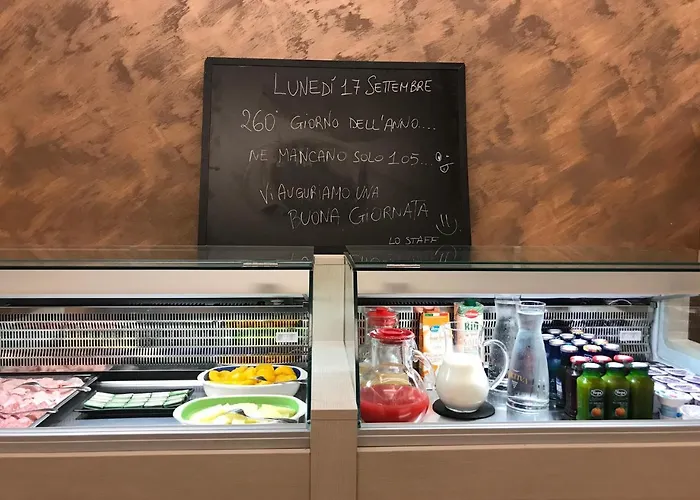 LUNEDÍ 17 SETTEMBRE
260° GIORNO DELL'ANNO....
NE MANCANO SOLO 105...
VI AUGURIAMO UNA
BUONA GIORNATA
LO STAFF